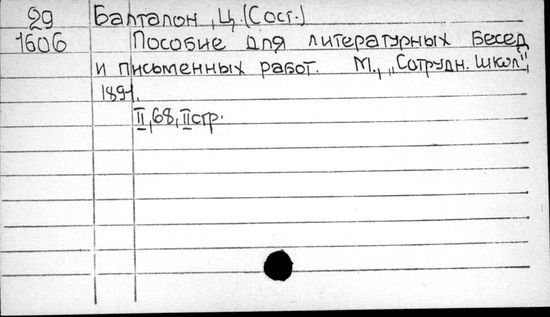 29 Балталон, Ц. (Сост.)
1606 Пособие для литературных бесед
и письменных работ. М., „Сотрудн. школ",
1891.
II, 68, II стр.